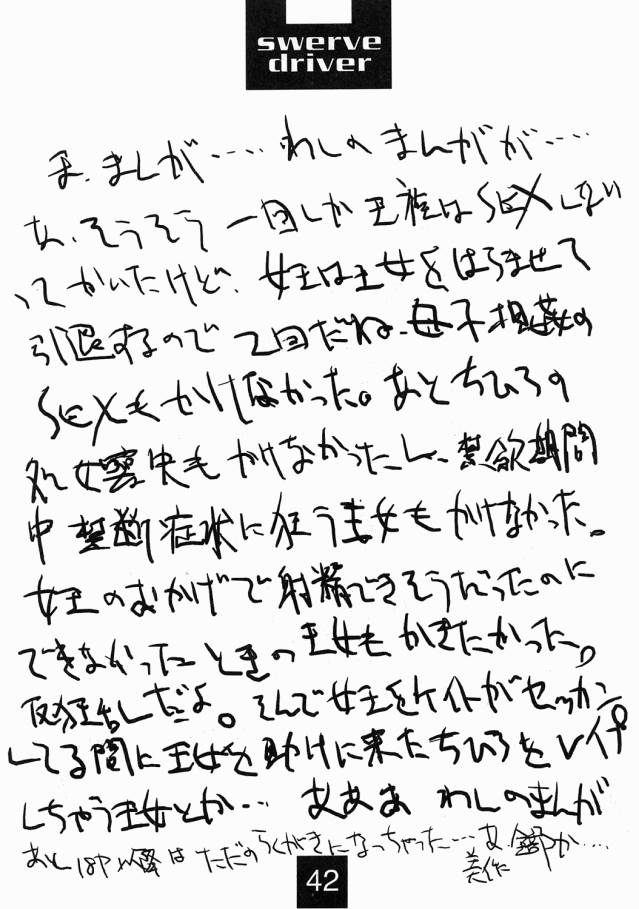 swerve
driver
ま、まんが…‥ わしの まんがが‥‥
あ、そうそう 一回しか 王族は SEXしない
って かいたけど、女王は王女をはらませて
引退するので 2回だね、母子相姦の
SEXもかけなかった。あとちひろの
処女喪失も かけなかったし、禁欲期間
中 禁断症状に狂う王女もかけなかった。
女王のおかげで射精できそうだったのに
できなかったときの王女も かきたかった。
しだよ。そんで女王をケイトがセッカン
してる間に王女を助けに来たちひろをレイプ
しちゃう王女とか… ああああ わしのまんが
あと 18P以降は ただのらくがきになっちゃった…
42